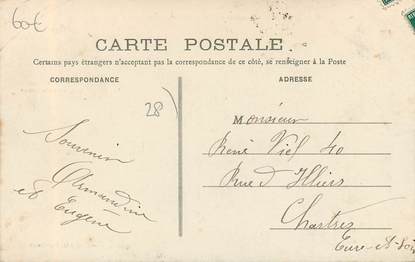 60€
CARTE POSTALE
Certains pays étrangers n'acceptant pas la correspondance de ce côté, se renseigner à la Poste
CORRESPONDANCE
ADRESSE
28
Souvenir
Armandine
et Eugène
Monsieur
René Viel 40
Rue d Illiers
Chartres
Eure-et-Loir